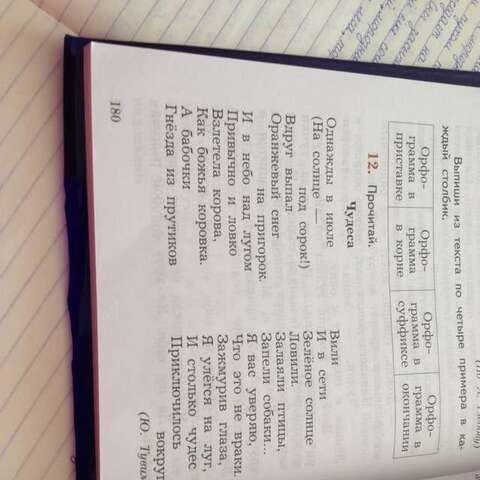 Выпиши из текста по четыре примера в ка-
ждый столбик.
Орфо-
грамма в
приставке
Орфо-
грамма
в корне
Орфо-
грамма в
суффиксе
Орфо-
грамма в
окончании
12. Прочитай.
Чудеса
Однажды в июле
(На солнце —
под сорок!)
Вдруг выпал
Оранжевый снег
на пригорок.
И в небо над лугом
Привычно и ловко
Взлетела корова,
Как божья коровка.
А бабочки
Гнёзда из прутиков
Вили
И в сети
Зелёное солнце
Ловили.
Залаяли птицы,
Запели собаки...
Я вас уверяю,
Что это не враки.
Зажмурив глаза,
Я улёгся на луг,
И столько чудес
Приключилось
вокруг
(Ю. Тувим
180